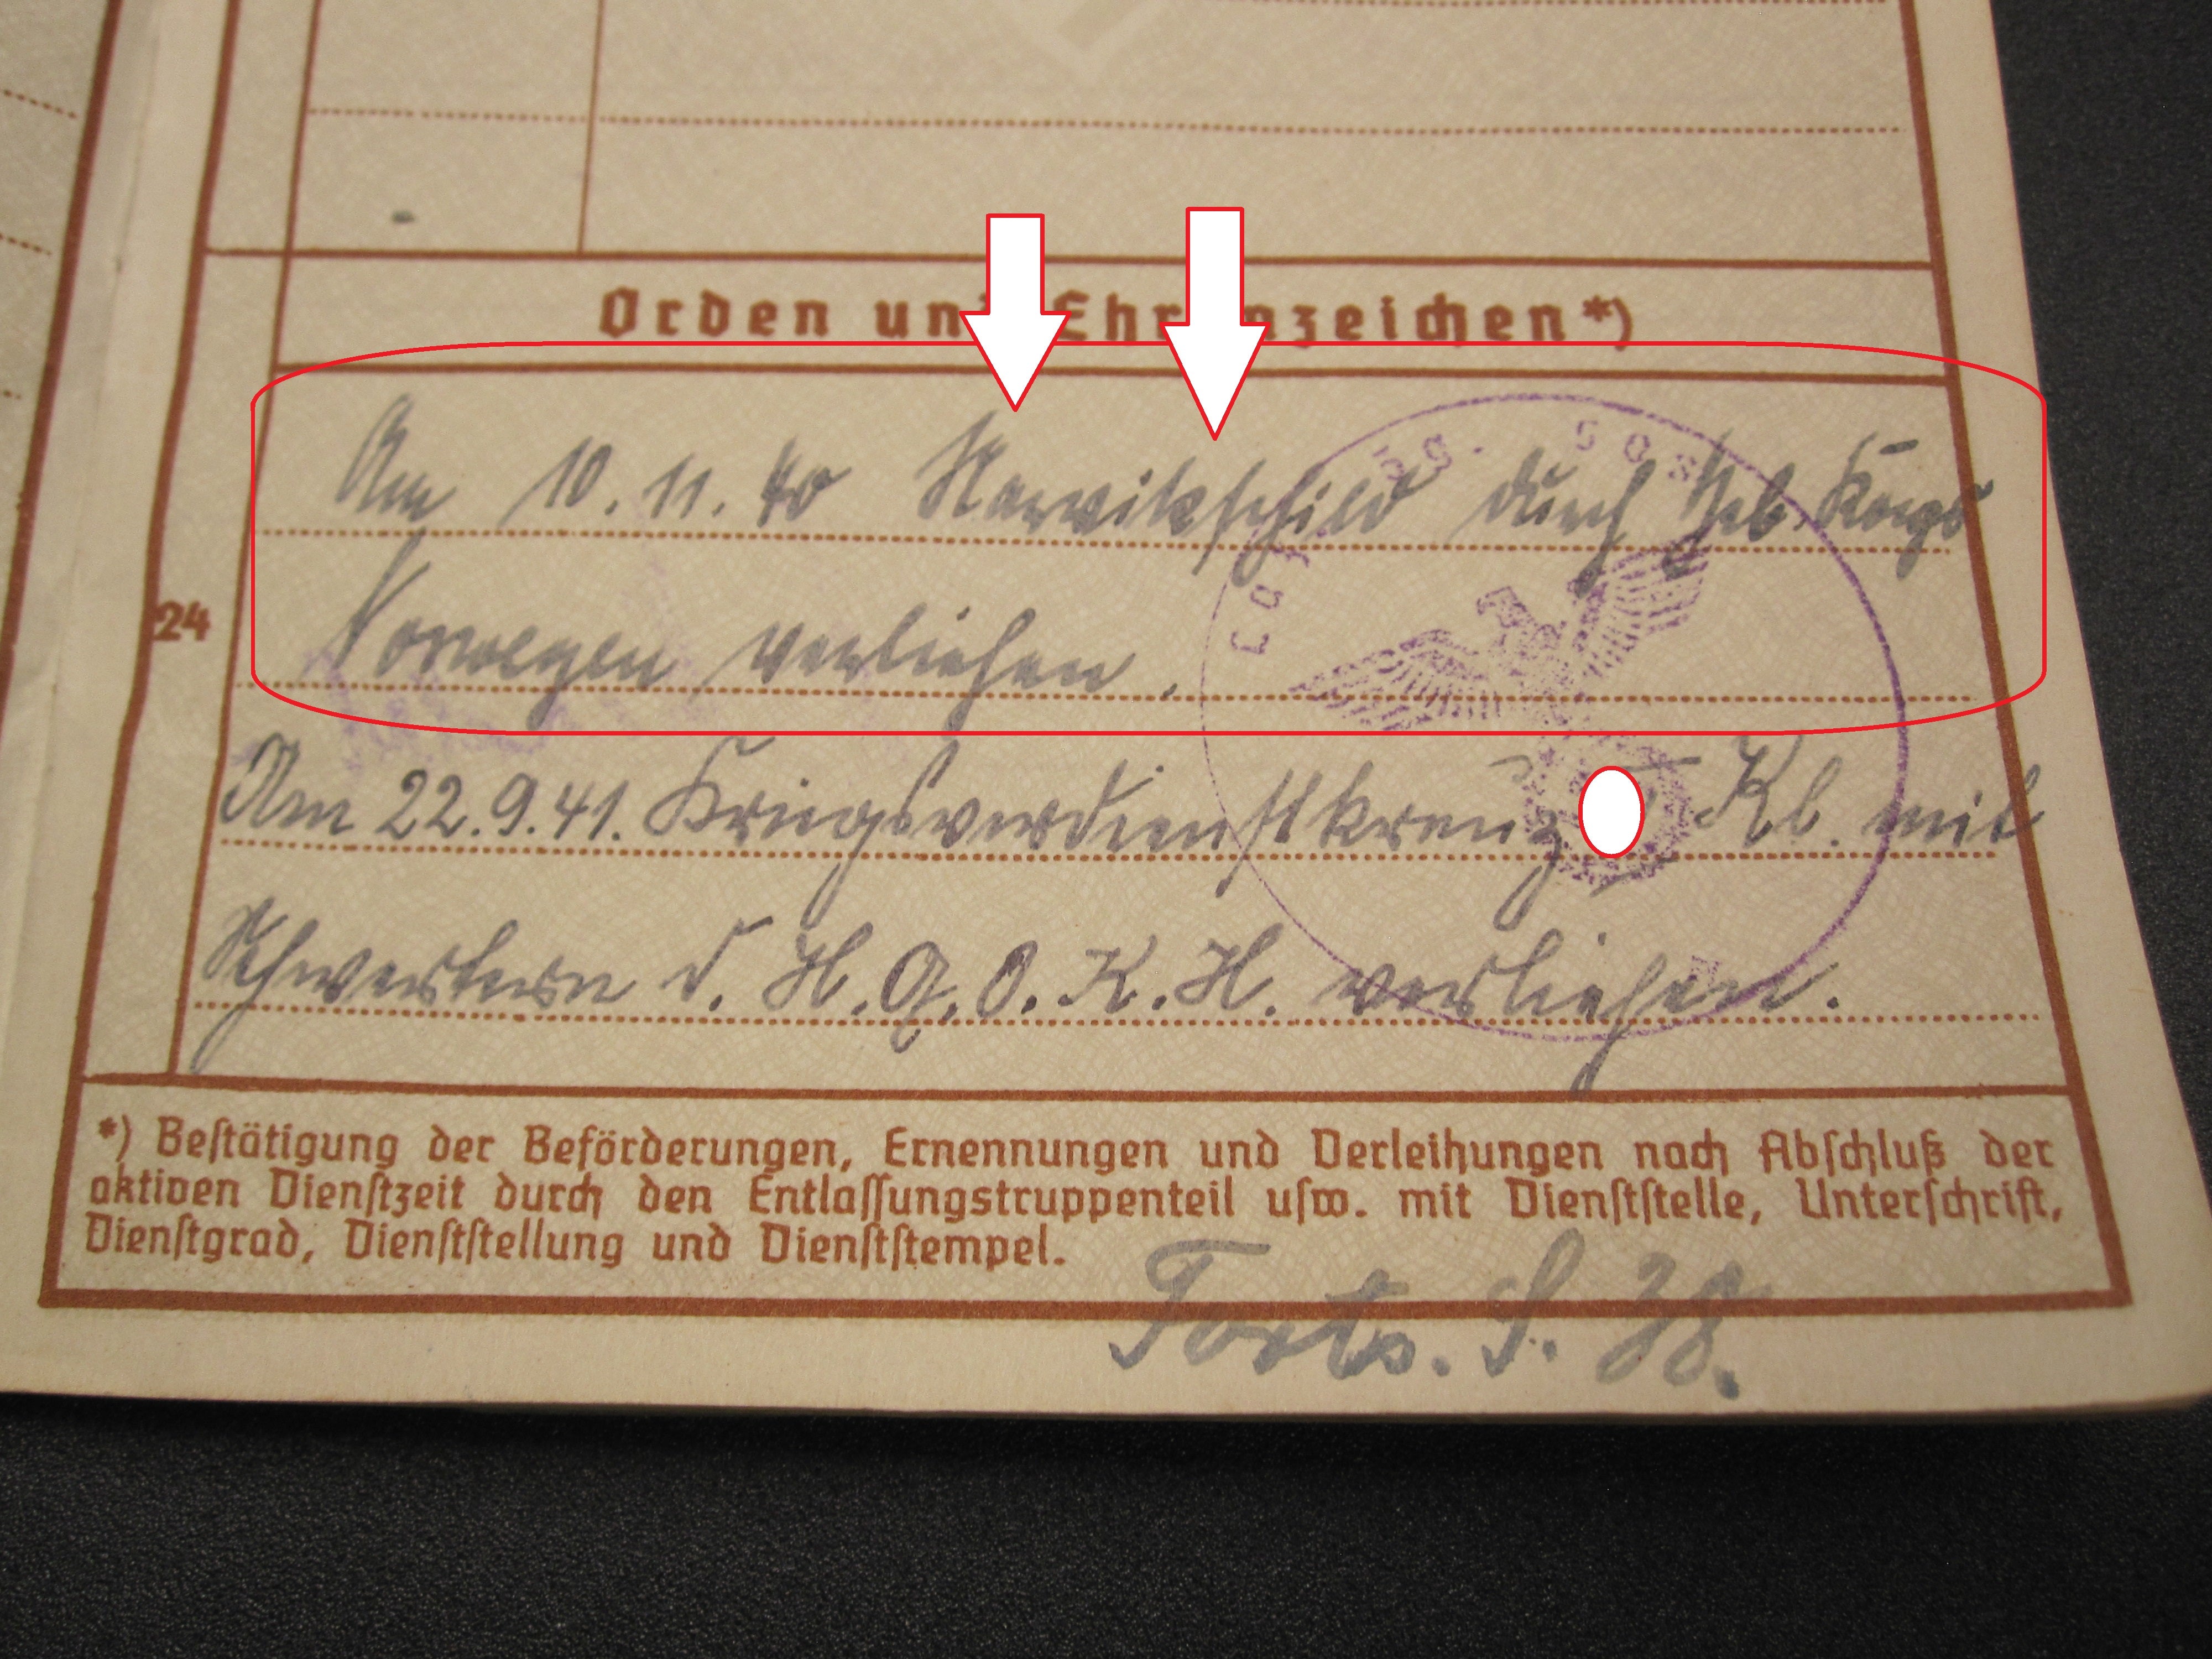 Orden und Ehrenzeichen*)
Am 10.11.40 Narvikschild durch Geb. Korps
Norwegen verliehen.
24
Am 22.9.41. Kriegsverdienstkreuz Kl. mit
Schwertern d. H.Q.O.K.H. verliehen.
*) Bestätigung der Beförderungen, Ernennungen und Verleihungen nach Abschluß der
aktiven Dienstzeit durch den Entlassungstruppenteil usw. mit Dienststelle, Unterschrift,
Dienstgrad, Dienststellung und Dienststempel.
Forts. S.